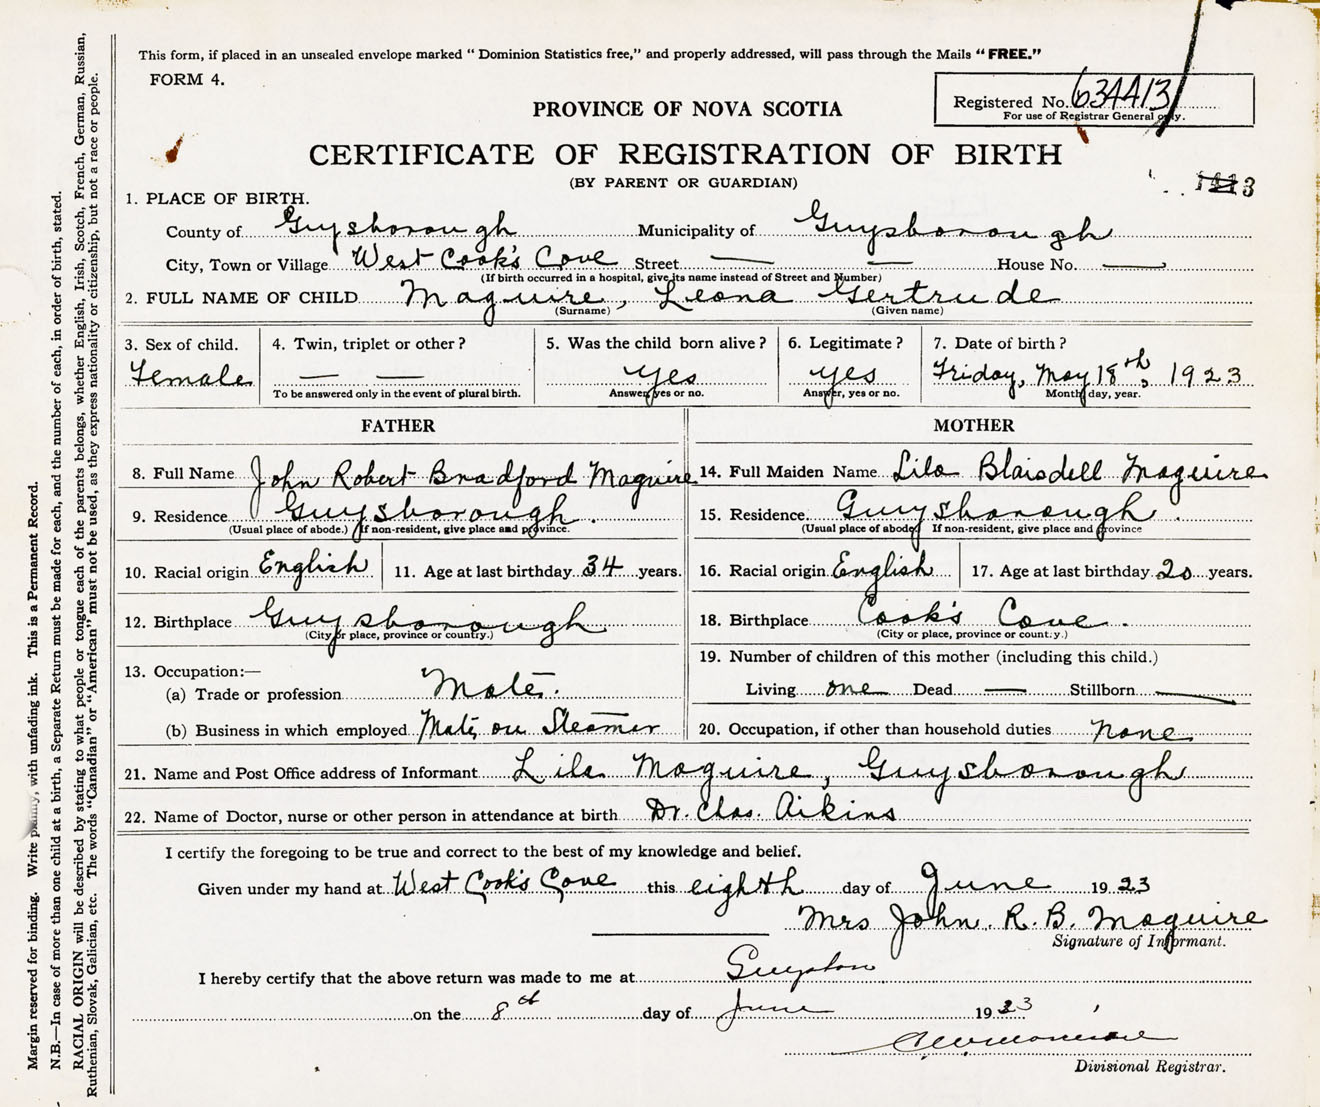 This form, if placed in an unsealed envelope marked " Dominion Statistics free," and properly addressed, will pass through the Mails "FREE."
FORM 4.
Registered No. 634413
For use of Registrar General only.
PROVINCE OF NOVA SCOTIA
CERTIFICATE OF REGISTRATION OF BIRTH
(BY PARENT OR GUARDIAN)
1. PLACE OF BIRTH.
County of Guysborough Municipality of Guysborough
City, Town or Village West Cook's Cove Street — — House No. —
(If birth occurred in a hospital, give its name instead of Street and Number)
2. FULL NAME OF CHILD Maguire, Leona Gertrude
(Surname) (Given name)
3. Sex of child. 4. Twin, triplet or other? 5. Was the child born alive? 6. Legitimate? 7. Date of birth?
Female — — yes yes Friday, May 18th, 1923
To be answered only in the event of plural birth. Answer, yes or no. Answer, yes or no. Month, day, year.
FATHER MOTHER
8. Full Name John Robert Bradford Maguire 14. Full Maiden Name Lila Blaisdell Maguire
9. Residence Guysborough. 15. Residence. Guysborough.
(Usual place of abode.) If non-resident, give place and province. (Usual place of abode) If non-resident, give place and province
10. Racial origin English 11. Age at last birthday 34 years. 16. Racial origin English 17. Age at last birthday 20 years.
12. Birthplace Guysborough 18. Birthplace Cook's Cove.
(City or place, province or country.) (City or place, province or country.)
13. Occupation:— 19. Number of children of this mother (including this child.)
(a) Trade or profession Mate. Living one Dead — Stillborn —
(b) Business in which employed Mate on Steamer 20. Occupation, if other than household duties None
21. Name and Post Office address of Informant Lila Maguire, Guysborough
22. Name of Doctor, nurse or other person in attendance at birth Dr. Chas. Aikins
I certify the foregoing to be true and correct to the best of my knowledge and belief.
Given under my hand at West Cook's Cove this eighth day of June 1923
Mrs John. R. B. Maguire
Signature of Informant.
I hereby certify that the above return was made to me at
on the 8th day of June 1923
Divisional Registrar.
Margin reserved for binding. Write plainly, with unfading ink. This is a Permanent Record.
N.B.—In case of more than one child at a birth, a Separate Return must be made for each, and the number of each, in order of birth, stated.
RACIAL ORIGIN will be described by stating to what people or tongue each of the parents belongs, whether English, Irish, Scotch, French, German, Russian,
Ruthenian, Slovak, Galician, etc. The words "Canadian" or "American" must not be used, as they express nationality or citizenship, but not a race or people.